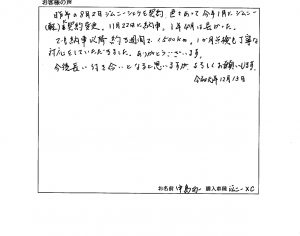 お客様の声
昨年の8月2日ジムニーシエラを契約、色々あって今年1月にジムニー
(軽)を契約変更。11月22日に納車。1年4か月は長かった。
でも納車以降約3週間で1500km。1か月点検も丁寧な
対応をしていただきました。ありがとうございます。
今後長い付き合いとなると思いますが、よろしくお願いします。
12月13日
お名前 中島 購入車種 ジムニー XC